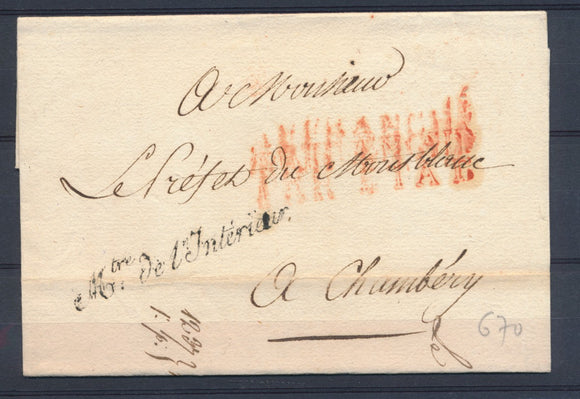 A Monsieur
Le Préfet du Montblanc
Mtre. De l'Intérieur.
A Chambéry
670